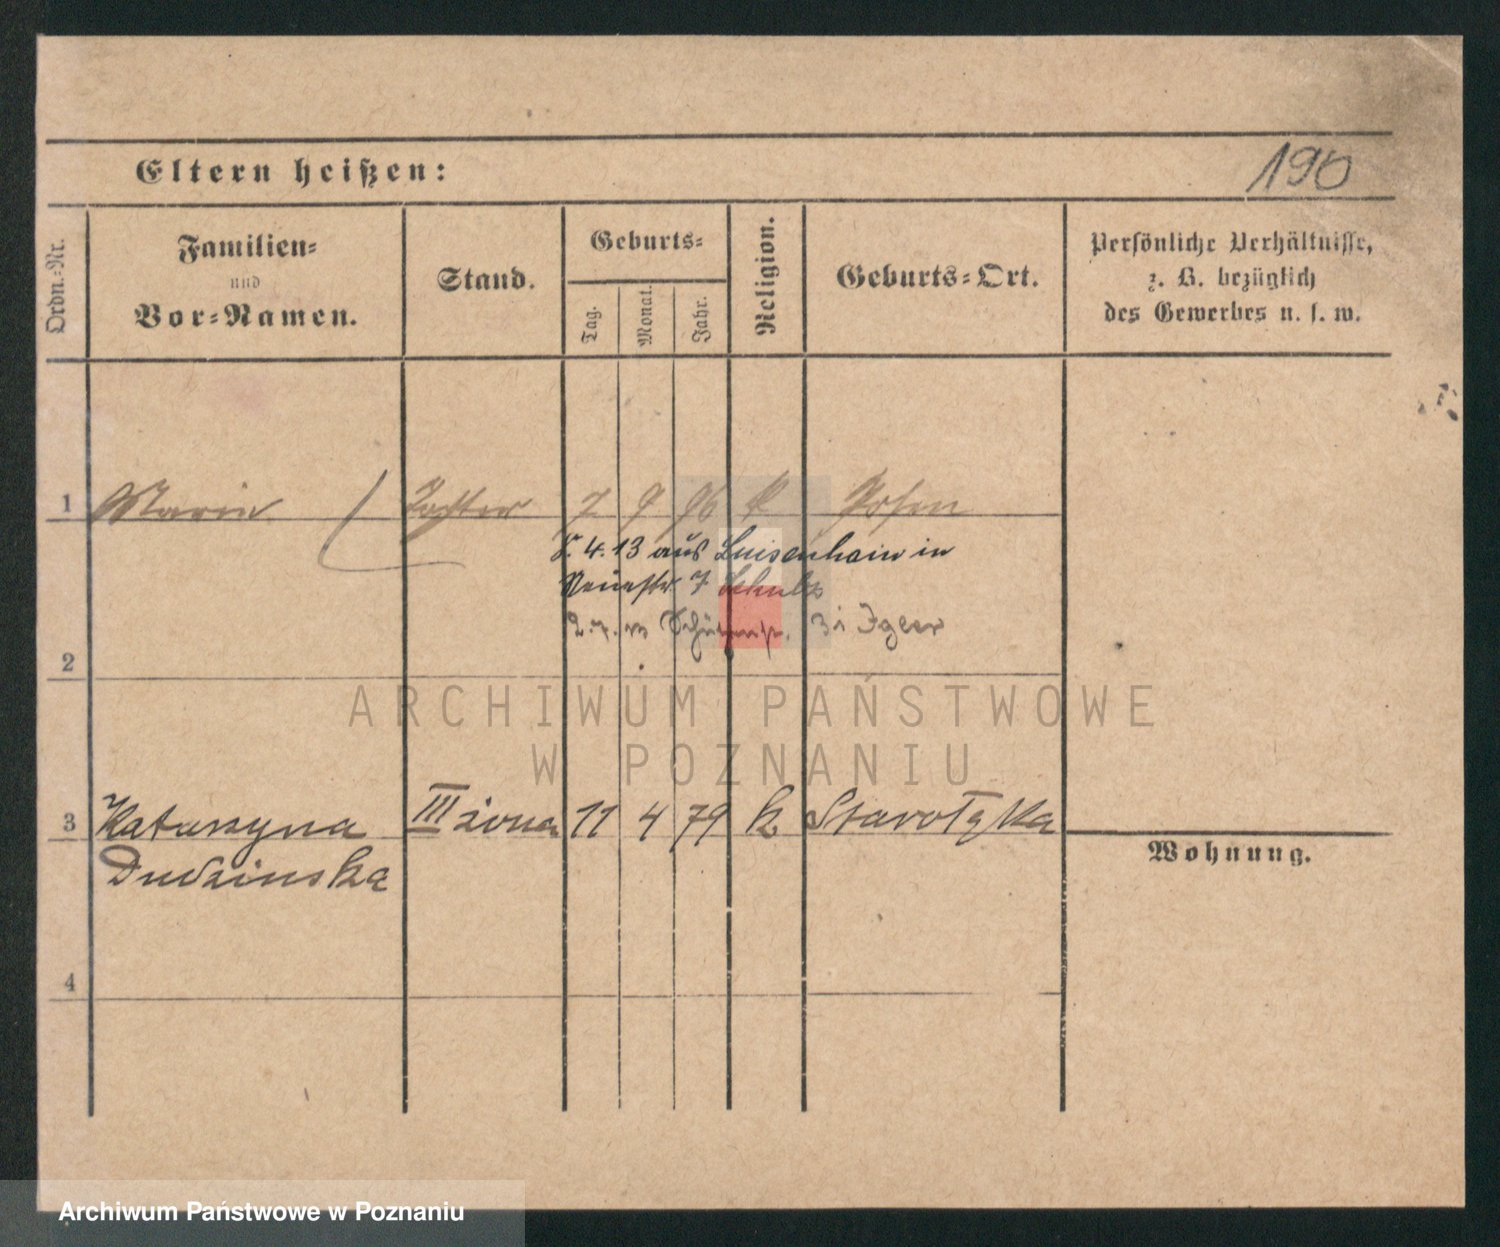 190
Eltern heißen:
Ordn.-Nr.
Familien-
und
Vor-Namen.
Stand.
Geburts-
Tag.
Monat.
Jahr.
Religion.
Geburts-Ort.
Persönliche Verhältnisse,
z. B. bezüglich
des Gewerbes u. s. w.
1 Maria Tochter 7 9 96 k Posen
4. 13 aus Luisenhain in
7 Schulz
2
ARCHIWUM PAŃSTWOWE
W POZNANIU
3 Katarzyna III żona 11 4 79 k Starołęka
Dudzinska
Wohnung.
4
Archiwum Państwowe w Poznaniu